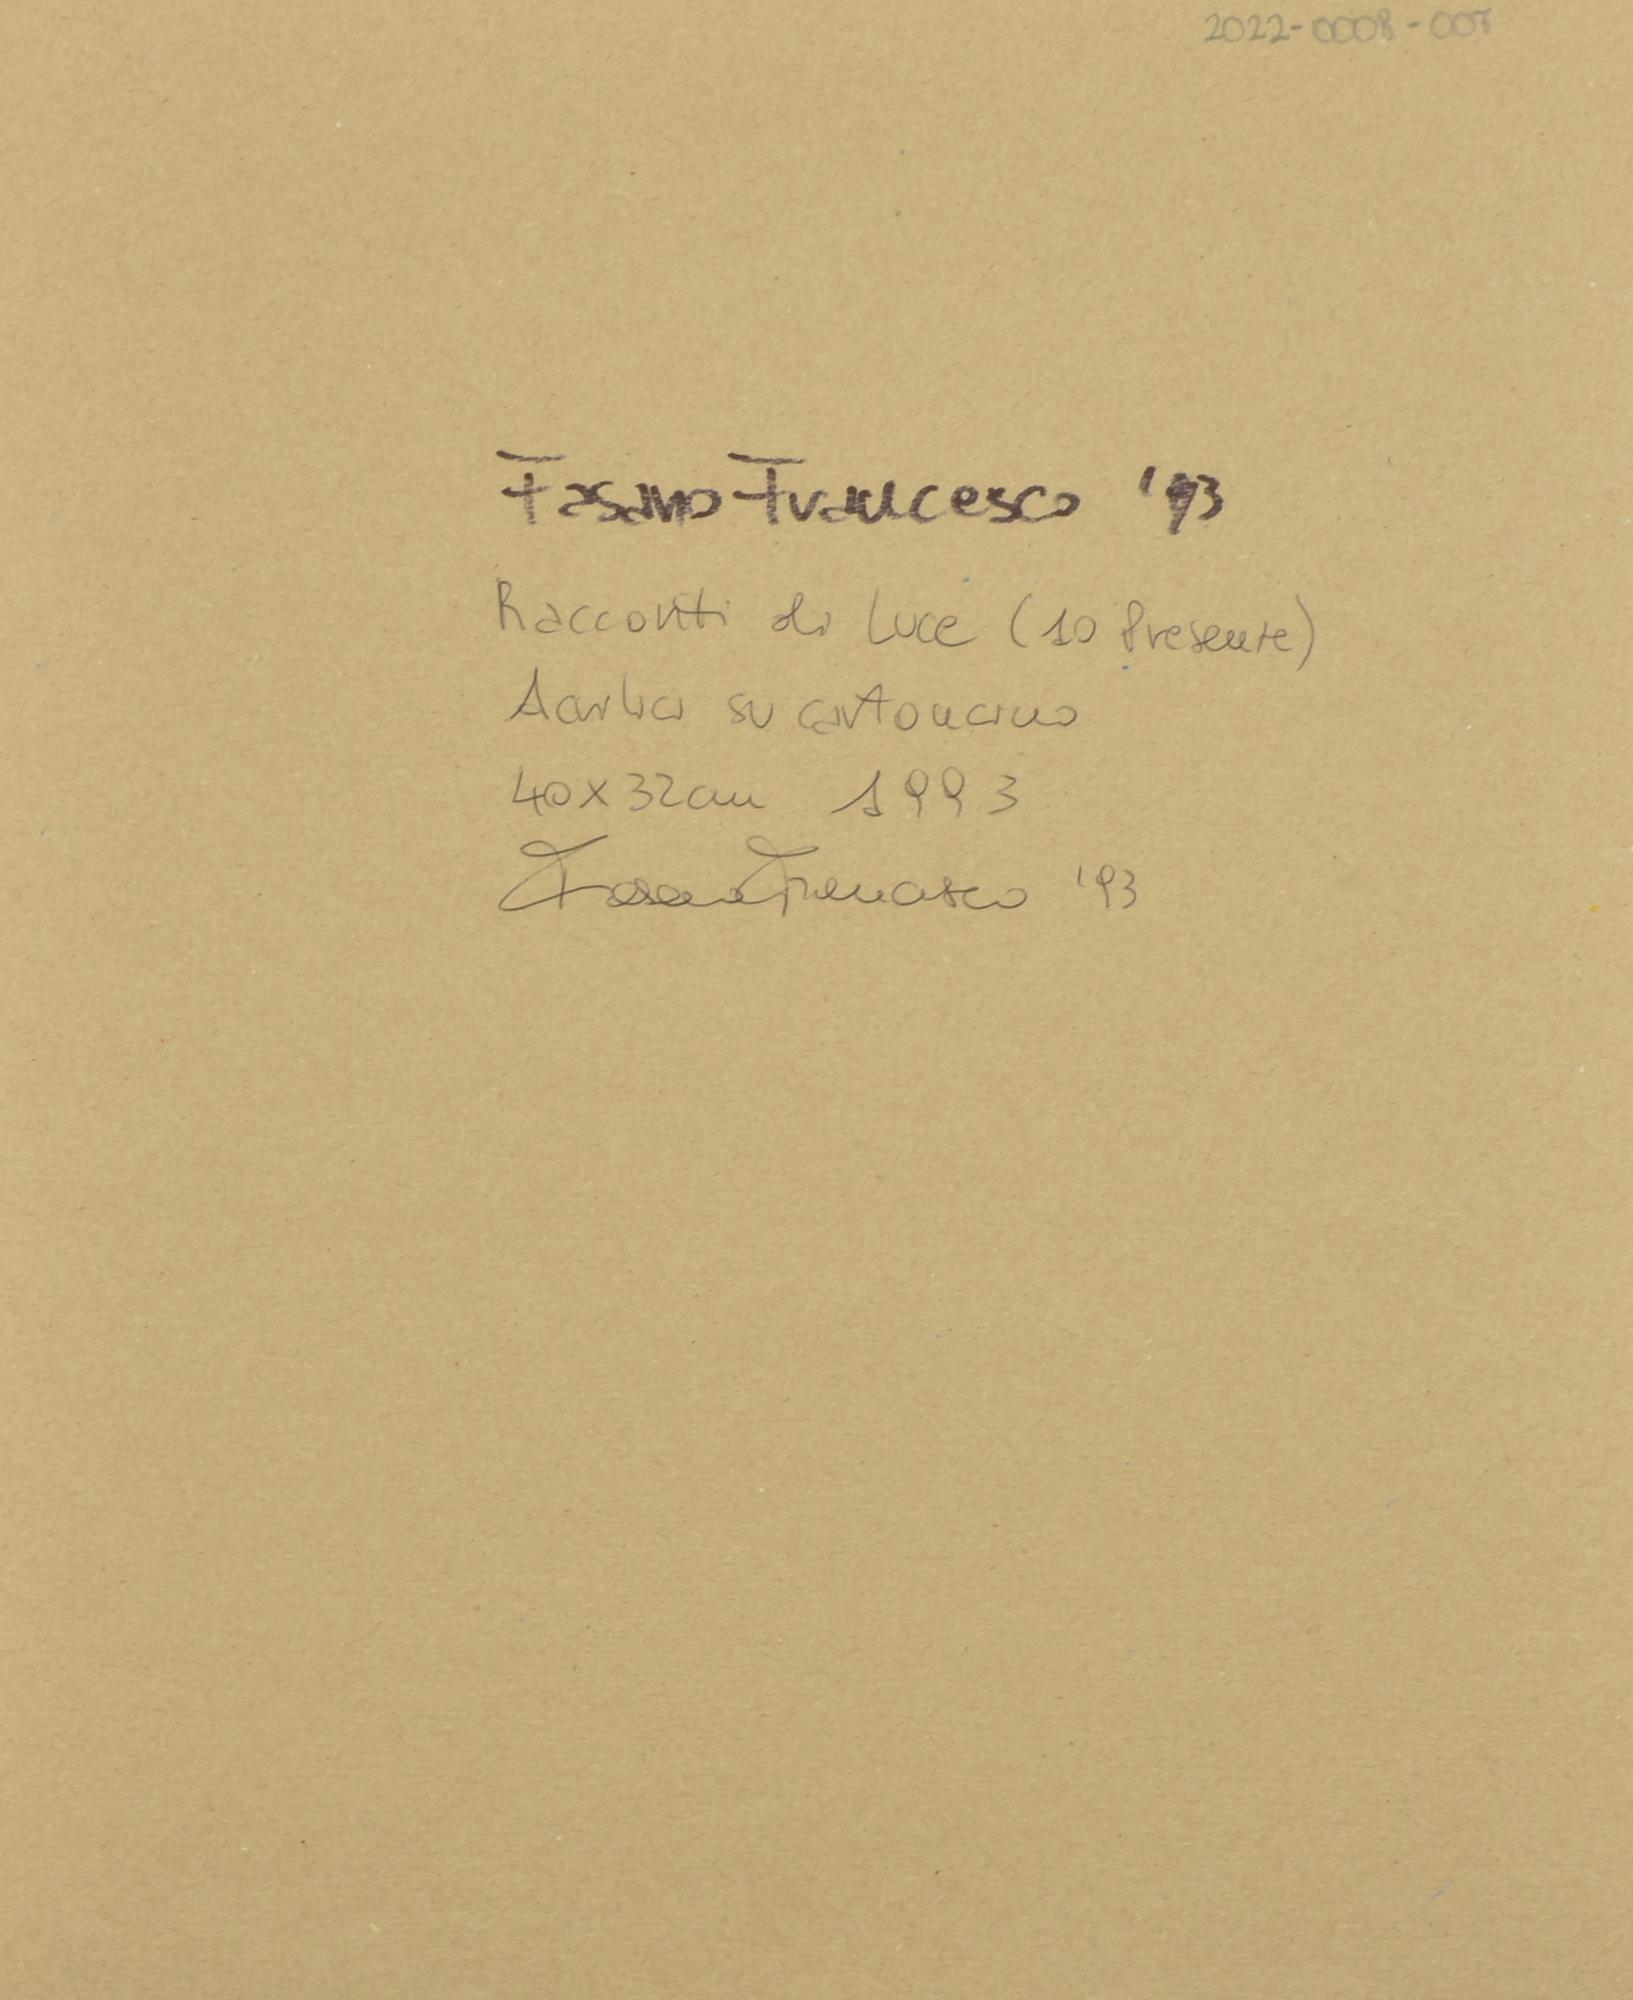 2022-0008-007
Fasano Francesco '93
Racconti di Luce (10 Presente)
Acrilici su cartoncino
40x32cm 1993
Fasano Francesco '93